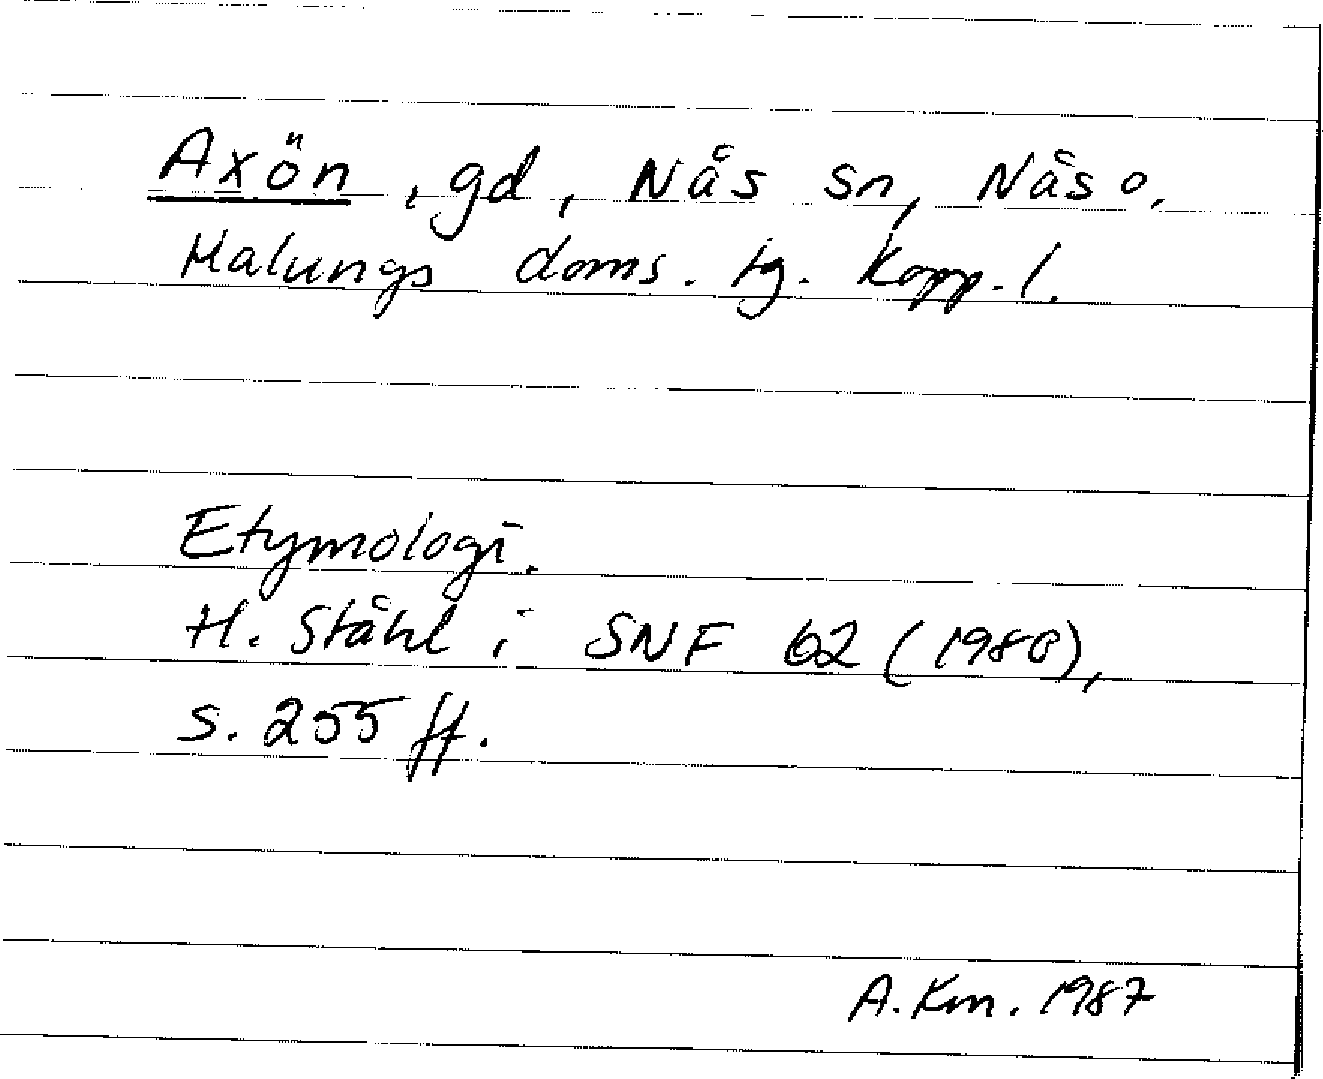 Axön, gd, Nås sn, Nås o.
Malungs doms. tg. Kopp. l.
Etymologi.
H. Ståhl i SNF 62 (1980),
s. 255 ff.
A. Km. 1987